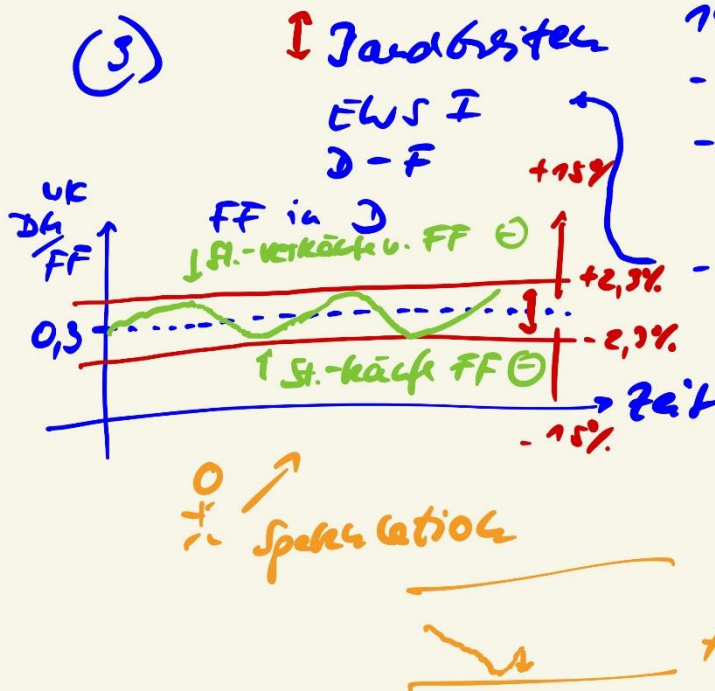 3
Bandbreiten
EWS I
D - F
+15%
WK
DM/FF
FF in D
↓ St.-verkäufe v. FF ⊖
+2,3%
0,3
- 2,3%
↑ St.-käufe FF ⊖
Zeit
- 15%
Spekulation